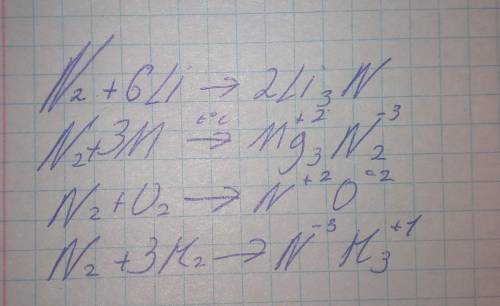 N₂ + 6Li → 2Li₃N
N₂ + 3M →(t°c) Mg₃⁺²N₂⁻³
N₂ + O₂ → N⁺²O⁻²
N₂ + 3H₂ → N⁻³H₃⁺¹